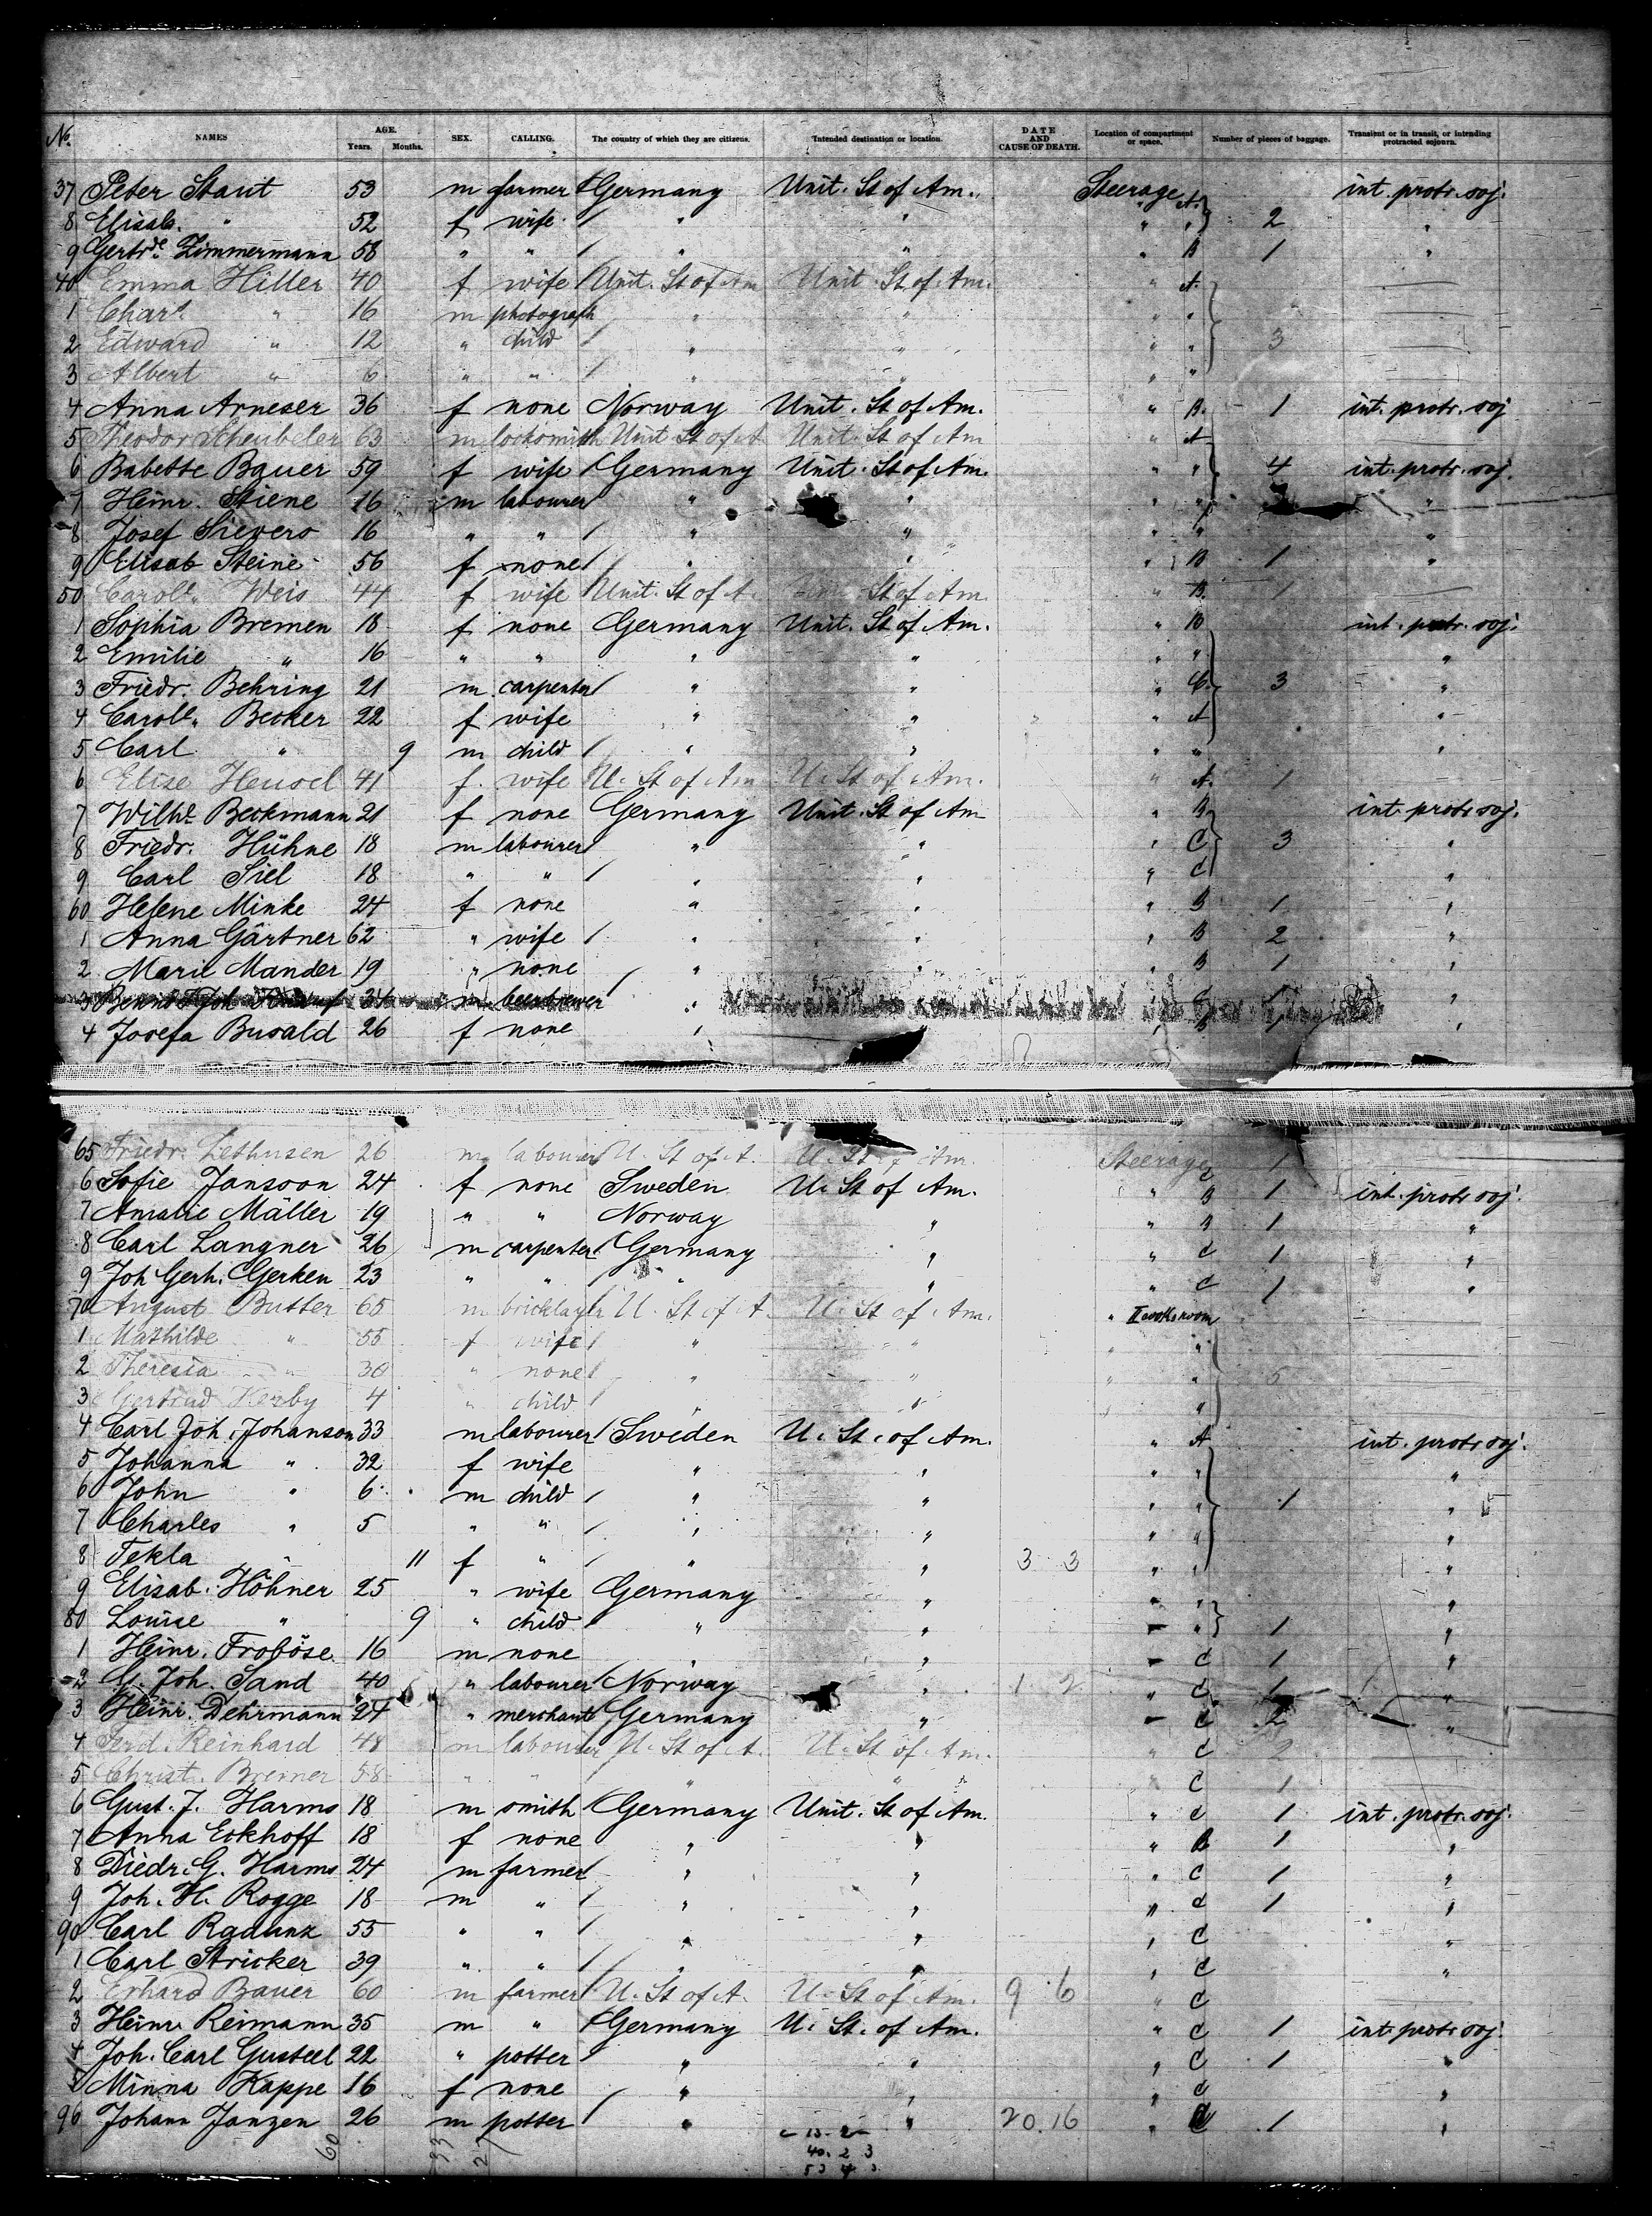 No. NAMES AGE. Years. Months. SEX. CALLING. The country of which they are citizens. Intended destination or location. DATE AND CAUSE OF DEATH. Location of compartment or space. Number of pieces of baggage. Transient or in transit, or intending protracted sojourn.
37 Peter Staut 53 m farmer Germany Unit. St of Am. Steerage A. int. protr. soj.
8 Elisab. " 52 f wife " " " " 2 "
9 Gertrde Zimmermann 58 " " " " " B 1 "
40 Emma Hiller 40 f wife Unit. St of Am Unit. St. of Am. " A. —
1 Chars. " 16 m photograph " " " " —
2 Edward " 12 " child " " " " 3 —
3 Albert " 6 " " " " " "
4 Anna Arneser 36 f none Norway Unit. St of Am. " B. 1 int. protr. soj
5 Theodor Scheubeler 63 m locksmith Unit St of A Unit. St of Am " A —
6 Babette Bauer 59 f wife Germany Unit. St of Am. " " 4 int. protr. soj.
7 Heinr. Stiene 16 m labourer " " " " "
8 Josef Sievers 16 " " " " " " "
9 Elisab Steine 56 f none " " " B 1 "
50 Carole. Weis 44 f wife Unit. St of A. St of Am. " B. 1 —
1 Sophia Bremen 18 f none Germany Unit. St of Am. " B int. protr. soj.
2 Emilie " 16 " " " " " " "
3 Friedr. Behring 21 m carpenter " " " C. 3 "
4 Carole. Becker 22 f wife " " " A "
5 Carl " 9 m child " " " " "
6 Elise Heusel 41 f. wife U. St of Am U. St of Am. " A. 1
7 Wilhe. Beckmann 21 f none Germany Unit. St of Am " B int. protr soj.
8 Friedr. Hühne 18 m labourer " " " C 3 "
9 Carl Siel 18 " " " " " C "
60 Helene Minke 24 f none " " " B 1 "
1 Anna Gärtner 62 " wife " " " B 2 "
2 Marie Mander 19 " none " " " B 1 "
3 Joh. 34 m beerbrewer "
4 Josefa Busald 26 f none " B 1 "
65 Friedr. Lethusen 26 m labourer U. St of A. U. St Am. Steerage 1 —
6 Sofie Jansson 24 f none Sweden U. St of Am. " B 1 int. protr soj.
7 Amalie Mäller 19 " " Norway " " B 1 "
8 Carl Langner 26 m carpenter Germany " " C 1 "
9 Joh Gerh. Gerken 23 " " " " " C 1 "
70 August Butter 65 m bricklayer U. St of A. U. St of Am. " II cooksroom
1 Mathilde " 55 f wife " " " "
2 Theresia " 30 " none " " " " 5
3 Gertrud Kerby 4 " child " " "
4 Carl Joh. Johanson 33 m labourer Sweden U. St. of Am. " A int. protr soj.
5 Johanna " 32 f wife " " " " "
6 John " 6 m child " " " " 1 "
7 Charles " 5 " " " " " " "
8 Tekla " 11 f " " " 3 3 " " "
9 Elisab. Höhner 25 " wife Germany " " " "
80 Louise " 9 " child " " " " 1 "
1 Heinr. Froböse 16 m none " " " C 1 "
2 G. Joh. Sand 40 " labourer Norway " 1 2 " C 1 "
3 Heinr. Dehrmann 24 " merchant Germany " " C 2 "
4 Ferd. Reinhard 48 m labourer U. St of A. U. St of Am. " C 2
5 Christ. Bremer 58 " " " " " C 1
6 Gust. J. Harms 18 m smith Germany Unit. St of Am. " C 1 int. protr. soj.
7 Anna Eckhoff 18 f none " " " B 1 "
8 Diedr. G. Harms 24 m farmer " " " C 1 "
9 Joh. H. Rogge 18 m " " " " C 1 "
90 Carl Radunz 55 " " " " " C "
1 Carl Stricker 39 " " " " " C "
2 Erhard Bauer 60 m farmer U. St of A. U. St of Am. 9 6 " C
3 Heinr. Reimann 35 m " Germany U. St. of Am. " C 1 int. protr soj.
4 Joh. Carl Gusteel 22 " potter " " " C 1 "
5 Minna Kappe 16 f none " " " C "
96 Johann Janzen 26 m potter " " 20.16 " C 1 "
60 33 27 13 2
40. 2 3
53 4 3